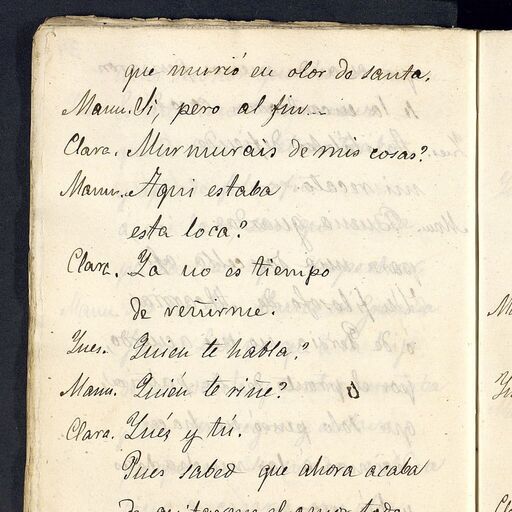 que murió en olor de santa.
Manu. Si, pero al fin...
Clara. Murmurais de mis cosas?
Manu. Aqui estaba
esta loca?
Clara. Ya no es tiempo
de reñirme.
Ynes. Quien te habla?
Manu. Quién te riñe?
Clara. Ynés y tú.
Pues sabed que ahora acaba
de quitarme el amor todo